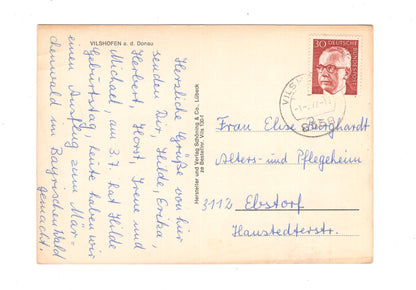 VILSHOFEN a. d. Donau
Herzliche Grüße von hier
senden Dir, Hilde, Erika,
Herbert, Horst, Irene und
Michael, am 3.7. hat Hilde
Geburtstag, heute haben wir
einen Ausflug zum Mär-
chenwald im Bayrischen Wald
gemacht.
Hersteller und Verlag Schöning & Co., Lübeck
30 DEUTSCHE BUNDESPOST
VILSH
8358
Frau Elise Burghardt
Alters- und Pflegeheim
3112 Ebstorf
Hanstedterstr.